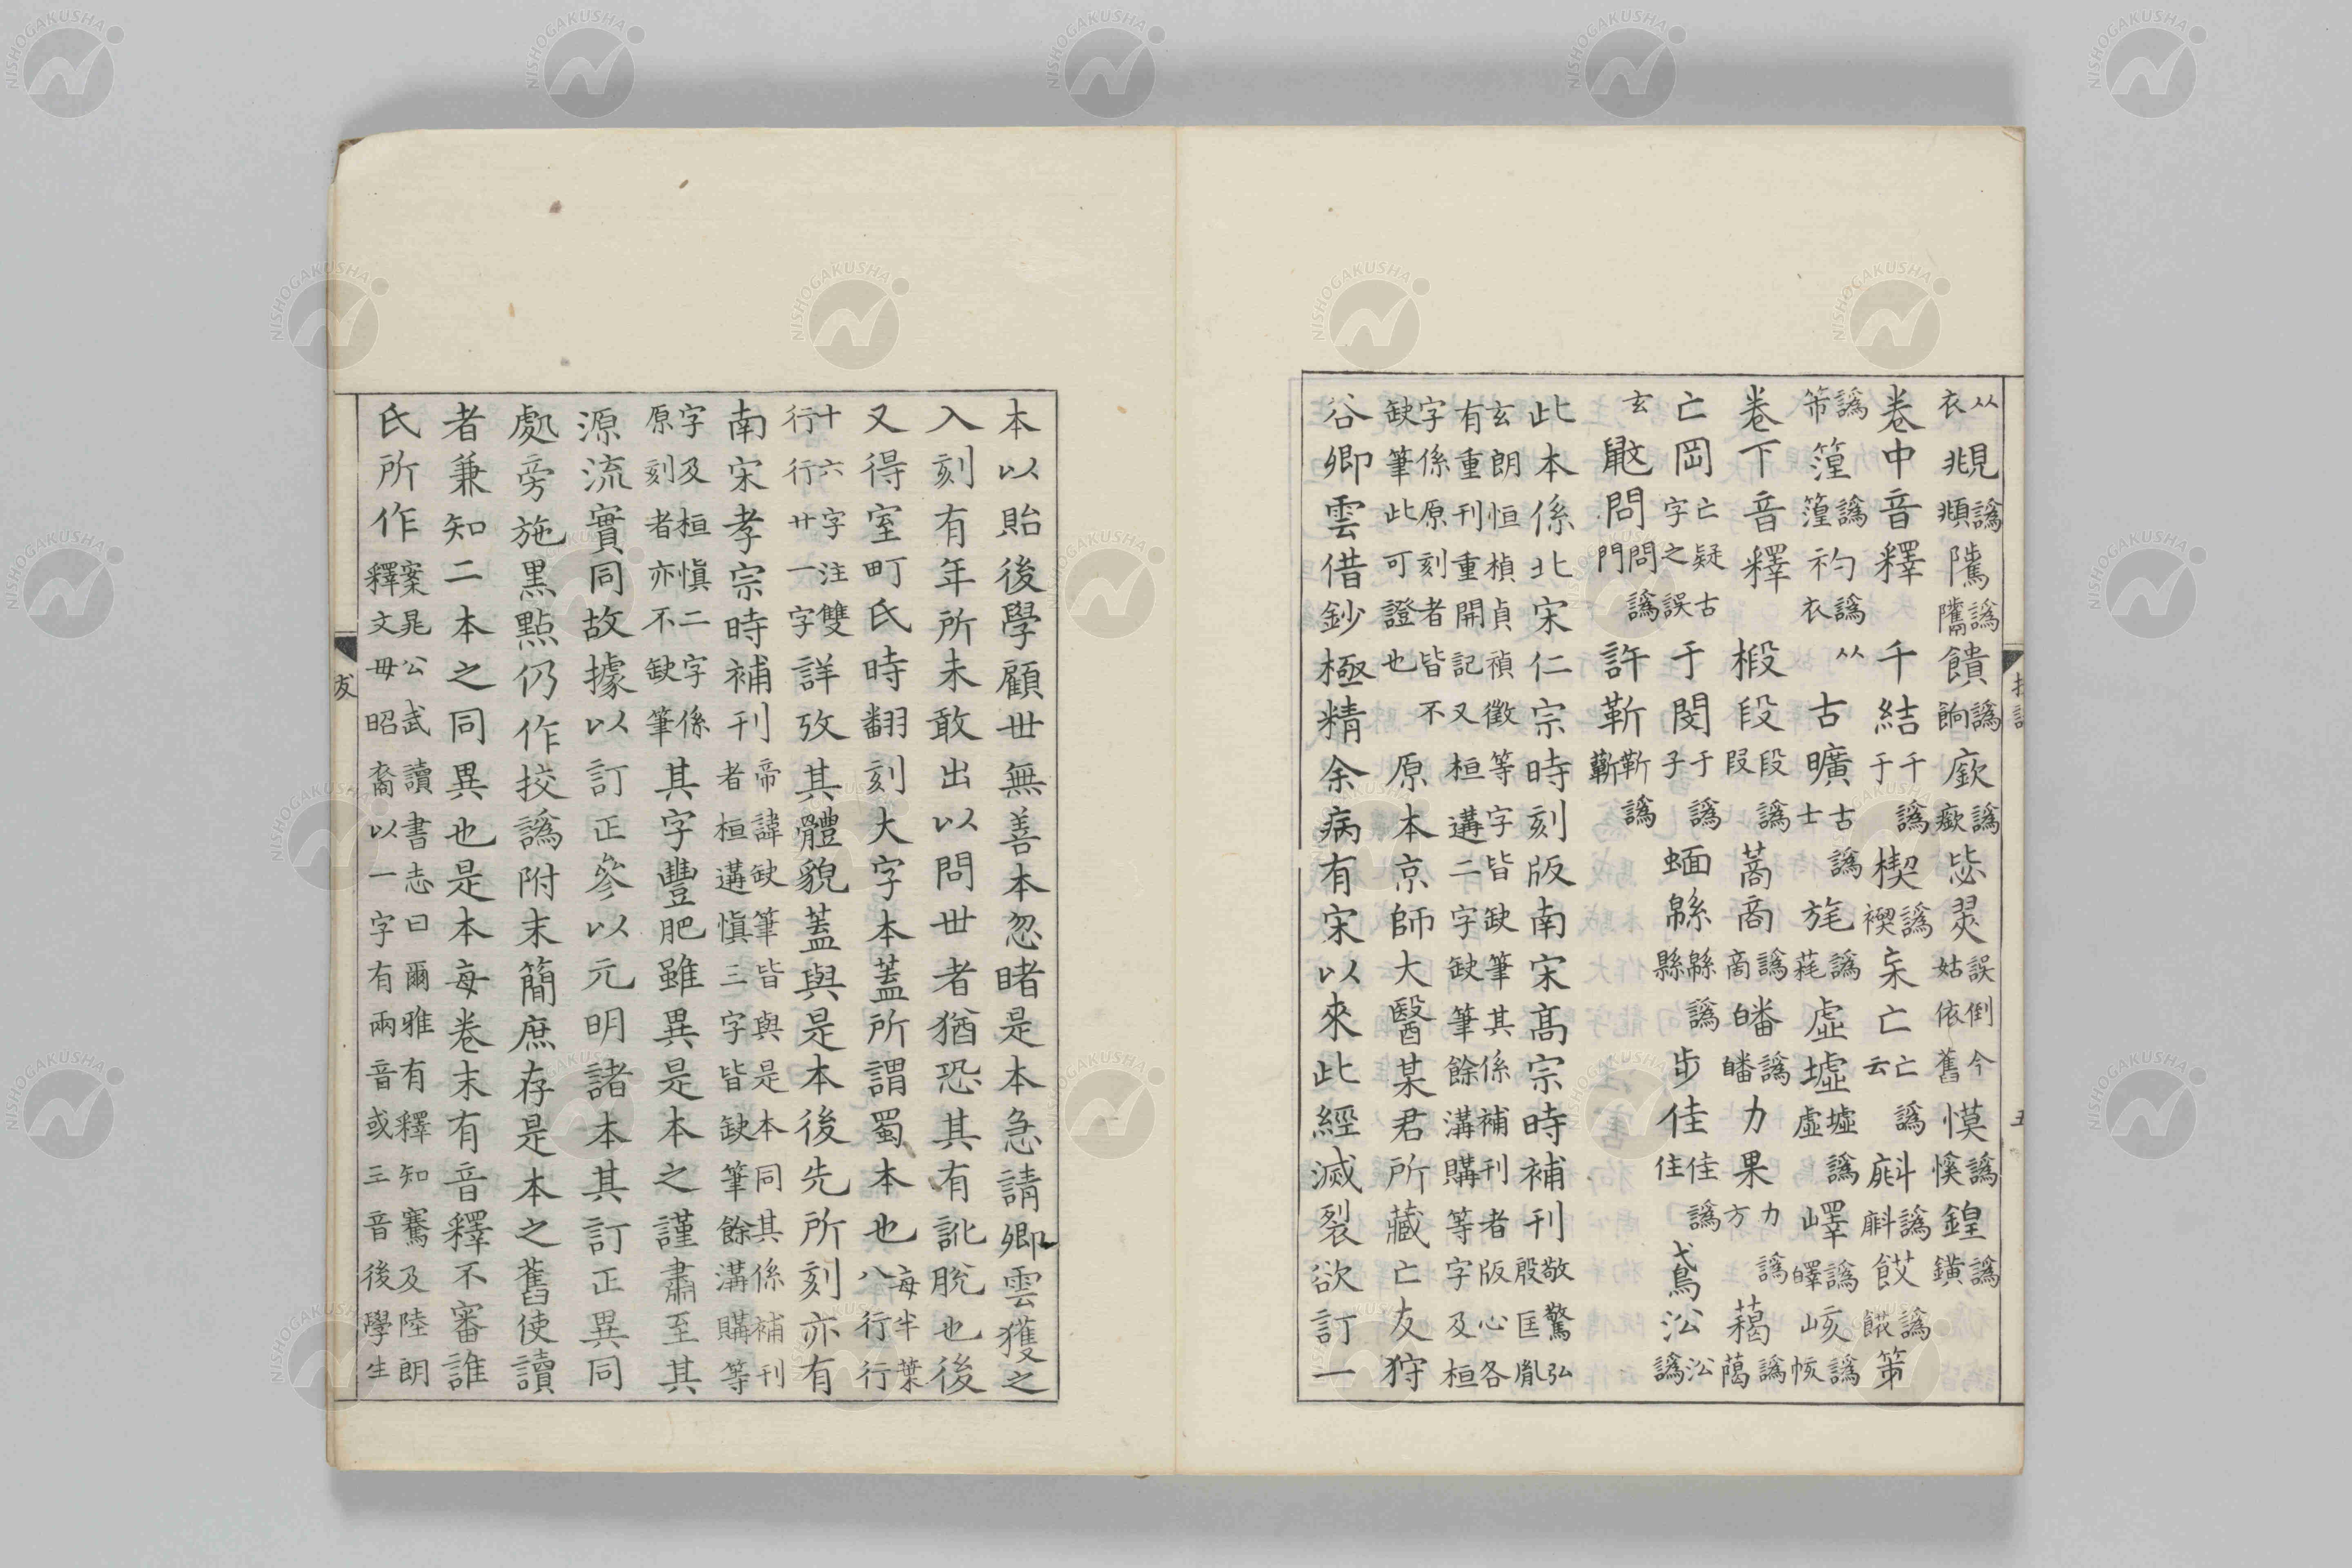 从衣覜譌頫隲譌饋譌餉廞譌毖誤倒今姑依舊慔譌慀鍠譌鐄
卷中音釋千結千譌于楔譌禊亡亡譌云譌餀譌第
譌篞譌礿譌从衣古曠古譌士旄譌蓩虛墟墟譌虛嶧譌峐譌
卷下音釋椴段段譌叚蒿商譌啇皤譌力果力譌方藒譌藹
亡岡亡疑古字之誤于閔于譌子蝒緜緜譌縣步佳佳譌住鳶㳂㳂譌
玄問問譌門許靳靳譌蘄
此本係北宋仁宗時刻版南宋高宗時補刊敬驚弘殷匡胤
玄朗恒楨貞禎徵等字皆缺筆其係補刊者版心各有重刊重開記又桓遘二字缺筆餘溝購等字及桓
字係原刻者皆不缺筆此可證也原本京師大醫某君所藏亡友狩
谷卿雲借鈔極精余病有宋以來此經滅裂欲訂一
本以貽後學顧世無善本忽睹是本急請卿雲獲之
入刻有年所未敢出以問世者猶恐其有訛脫也後
又得室町氏時翻刻大字本蓋所謂蜀本也每半葉八行行
十六字注雙行行廿一字詳攷其體貌蓋與是本後先所刻亦有
南宋孝宗時補刊帝諱缺筆皆與是本同其係補刊者桓遘愼三字皆缺筆餘溝購等
字及桓愼二字係原刻者亦不缺筆其字豐肥雖異是本之謹肅至其
源流實同故據以訂正參以元明諸本其訂正異同
處旁施黑點仍作挍譌附末簡庶存是本之舊使讀
者兼知二本之同異也是本每卷末有音釋不審誰
氏所作案晁公武讀書志曰爾雅有釋知騫及陸朗釋文毋昭裔以一字有兩音或三音後學生